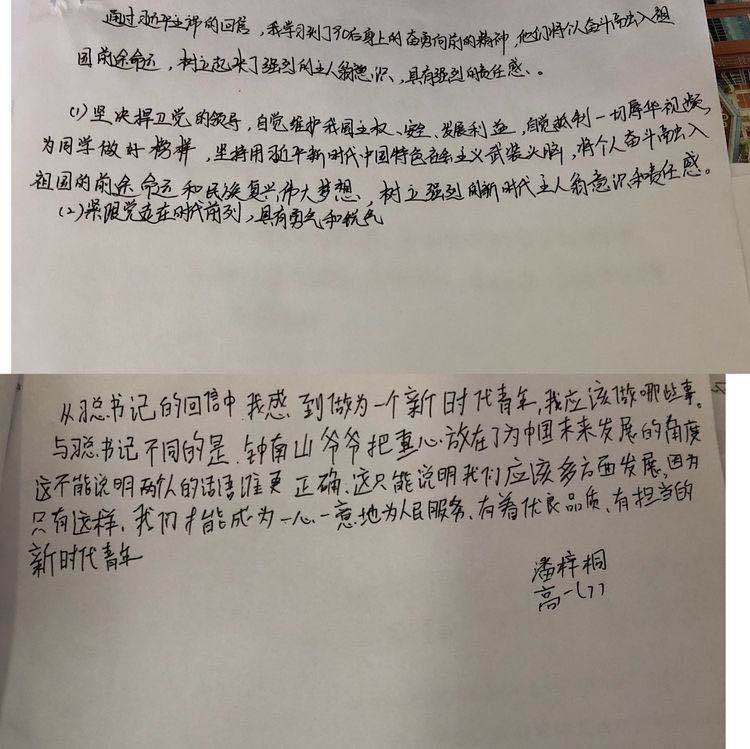 通过习近平主席的回信，我学习到了90后身上的奋勇向前的精神，他们将个人奋斗融入祖
国前途命运，树立起了强烈的主人翁意识、具有强烈的责任感、。
(1)坚决捍卫党的领导，自觉维护我国主权、安全、发展利益，自觉抵制一切辱华视频，
为同学做好榜样，坚持用习近平新时代中国特色社会主义武装头脑，将个人奋斗融入
祖国的前途命运和民族复兴伟大梦想，树立强烈的新时代主人翁意识和责任感。
(2)紧跟党走在时代前列，具有勇气和锐气
从习总书记的回信中我感到做为一个新时代青年，我应该做哪些事。
与习总书记不同的是，钟南山爷爷把重心放在了为中国未来发展的角度
这不能说明两个人的话语谁更正确、这只能说明我们应该多方面发展，因为
只有这样，我们才能成为一心一意地为人民服务、有着优良品质、有担当的
新时代青年
潘梓桐
高一(7)